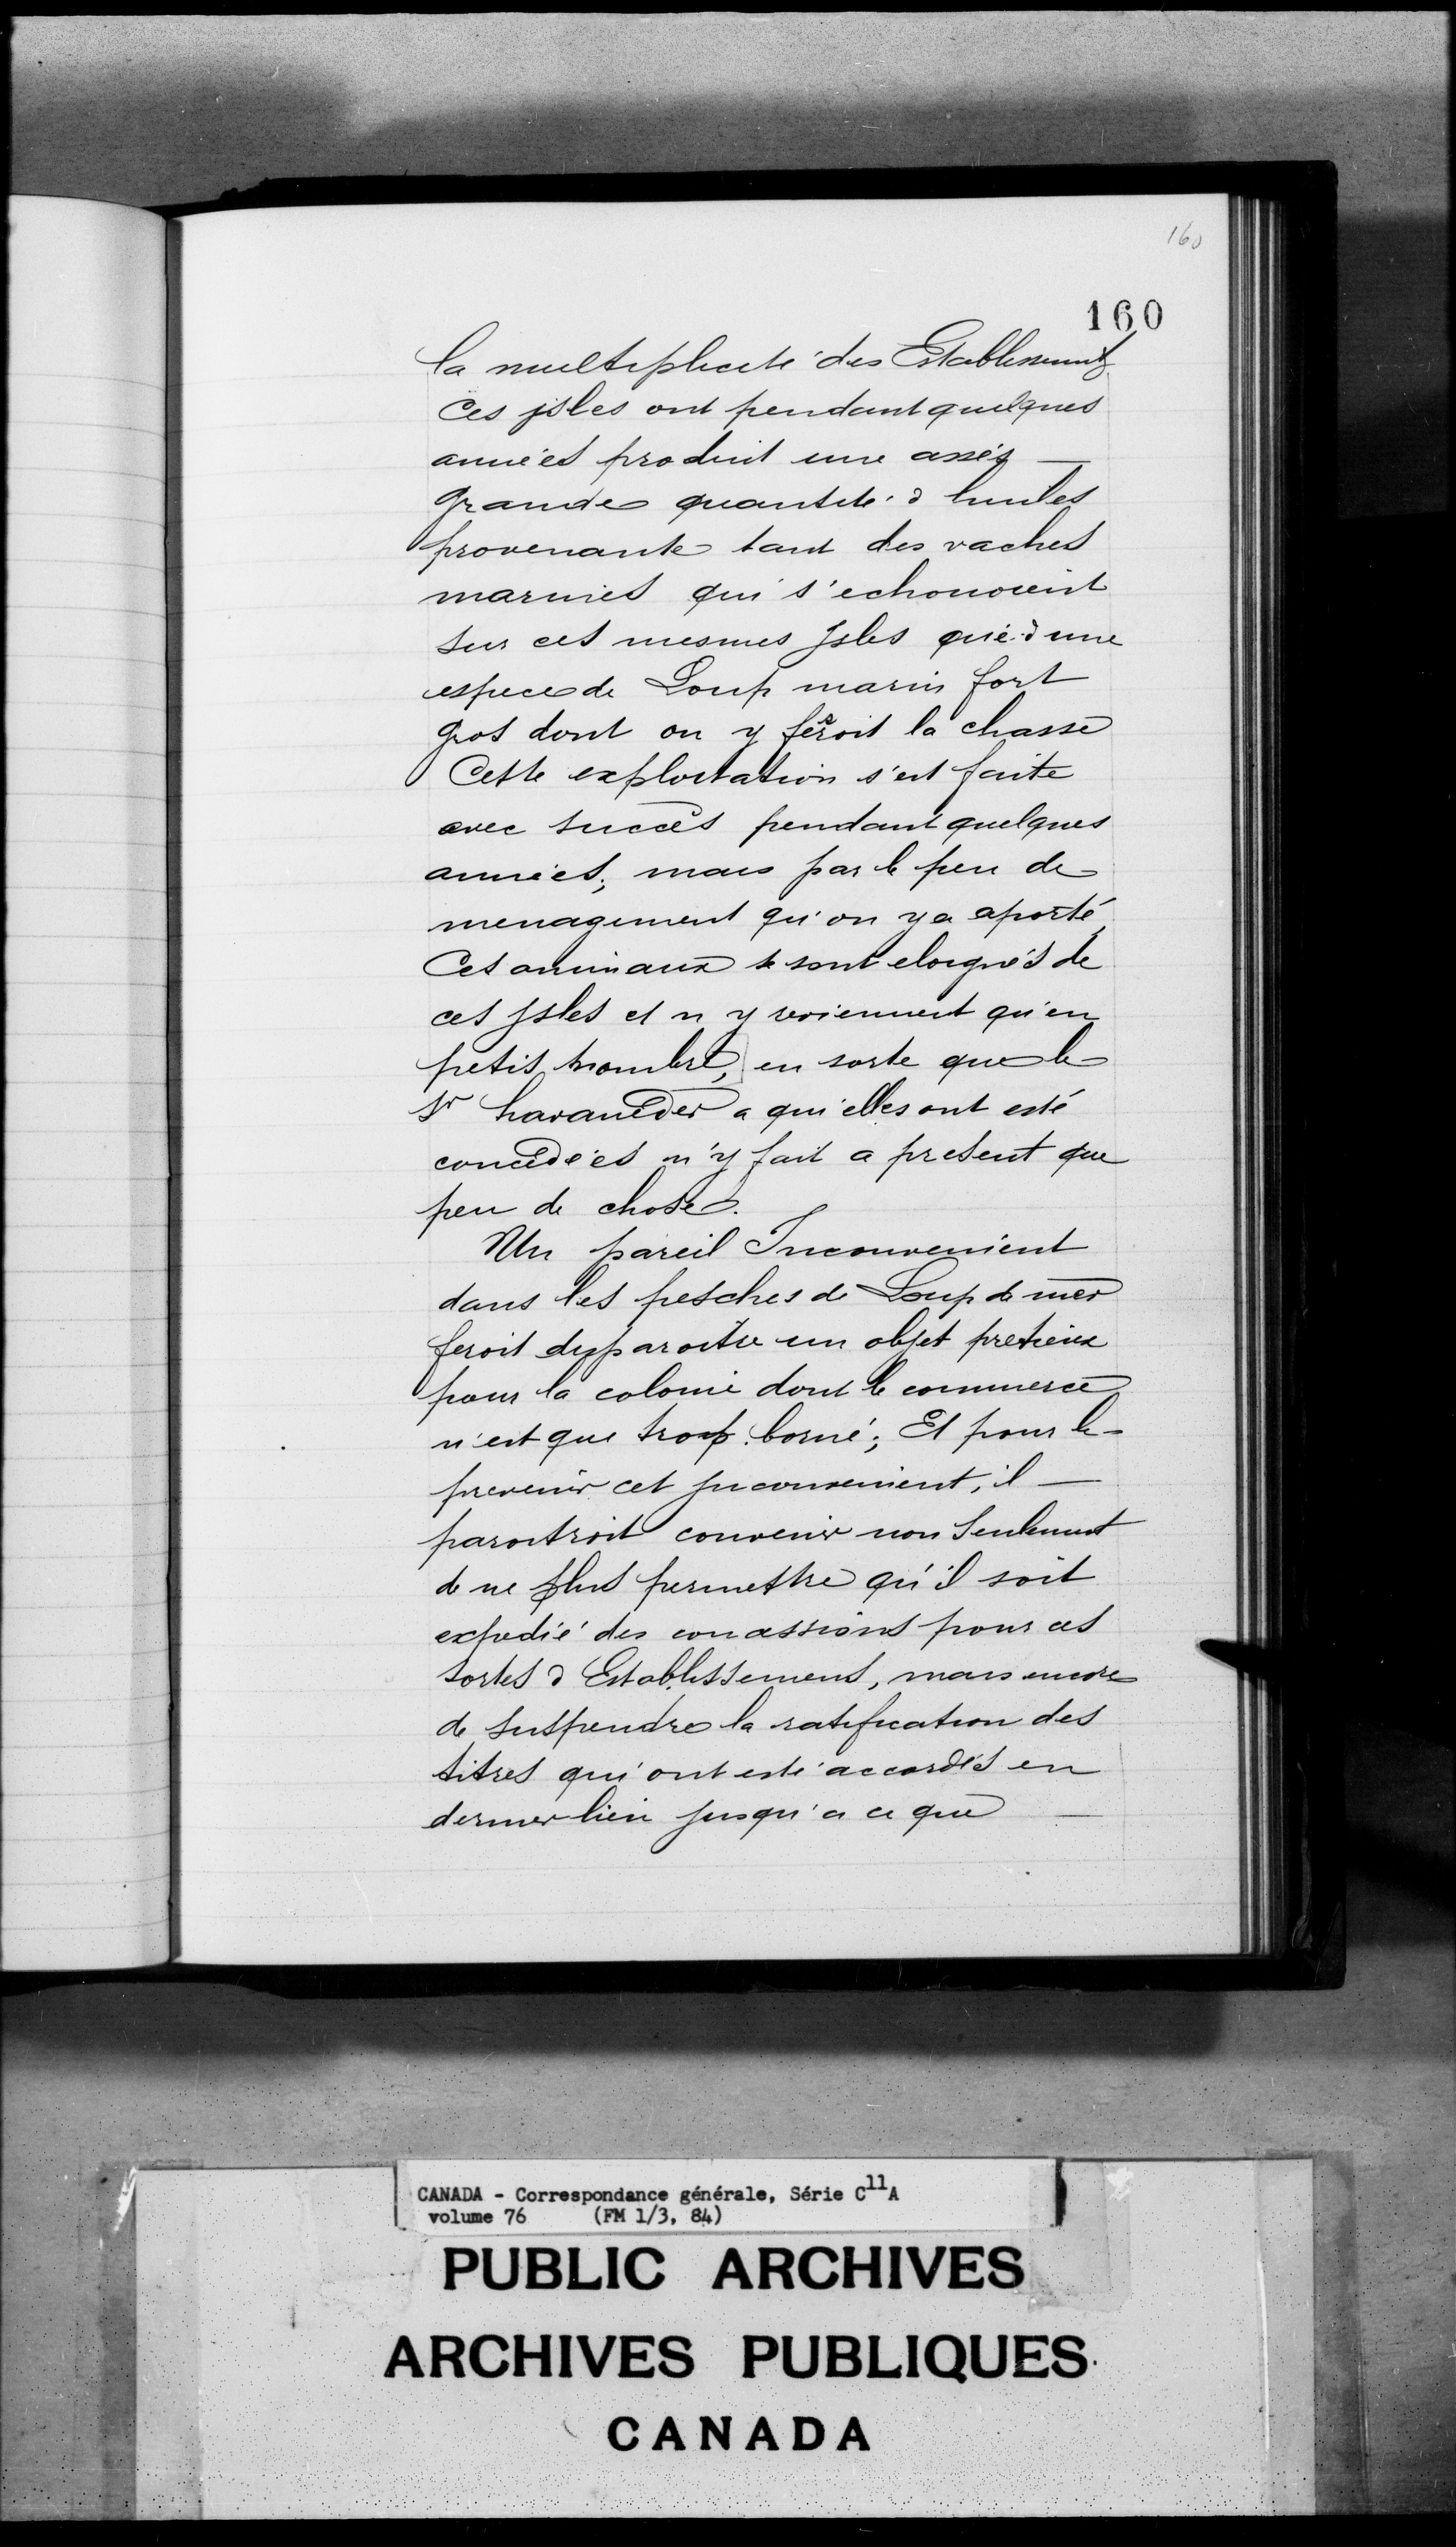 160
160
la multiplicité des Establissements
Ces isles ont pendant quelques
années produit une assés —
grande quantité d huiles
provenante tant des vaches
marines qui s'echouoient
sur ces mesmes Isles que d une
espece de Loup marin fort
gros dont on y feroit la chasse
Cette exploitation s'est faite
avec succès pendant quelques
années; mais par le peu de
menagement qu'on y a aporté,
Ces animaux se sont eloignés de
ces Isles et n y reviennent qu'en
petit nombre, en sorte que le
Sr haranéder a qui elles ont esté
concédées n'y fait a present que
peu de chose.
Un pareil Inconvenient
dans les pesches de Loup de mer
feroit disparoitre un objet pretieux
pour la colonie dont le commerce
n'est que trop borné; Et pour le
prevenir cet Inconvenient, il —
paroitroit convenir non Seulement
de ne plus permettre qu'il soit
expedié des concessions pour ces
sortes d Establissemens, mais encore
de suspendre la ratification des
titres qui ont esté accordés en
dernier lieu jusqu'a ce que —
CANADA - Correspondance générale, Série C11A
volume 76 (FM 1/3, 84)
PUBLIC ARCHIVES
ARCHIVES PUBLIQUES
CANADA